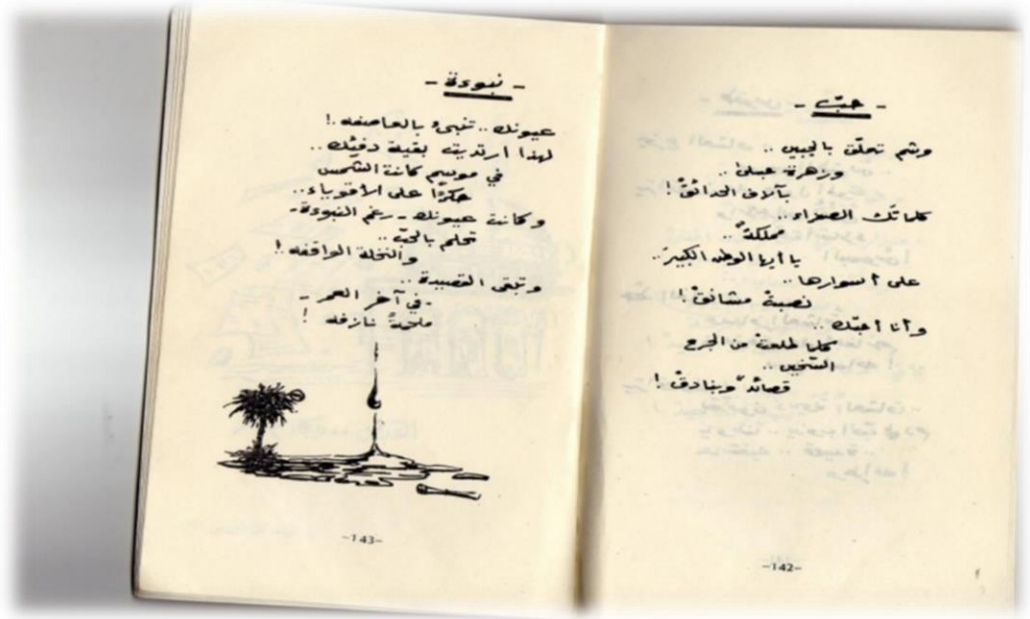 - حبّ -
وشم تعلّق بالجبين ..
وزهرة حبلى ..
بآلاف الحدائقْ !
كلماتك الصفراء ..
مملكةٌ ..
يا أيها الوطن الكبير ..
على أسوارها ..
نصبتْ مشانقْ !!
وأنا أحبّك ..
كلما طلعتْ من الجرح
الثخين ..
قصائدٌ وبنادقْ !
-142-
- نبوءة -
عيونك .. تنبىء بالعاصفه .!
لهذا ارتديت بقيلة دفئك ..
في موسم كانت الشمس
حكرًا على الأقوياء ..
وكانت عيونك - رغم النبوءة -
تحلم بالحبّ ..
والنخلة الواقفه .!
وتبقى القصيدة ..
- في آخر العمر -
ملحمةً نازفه !
-143-